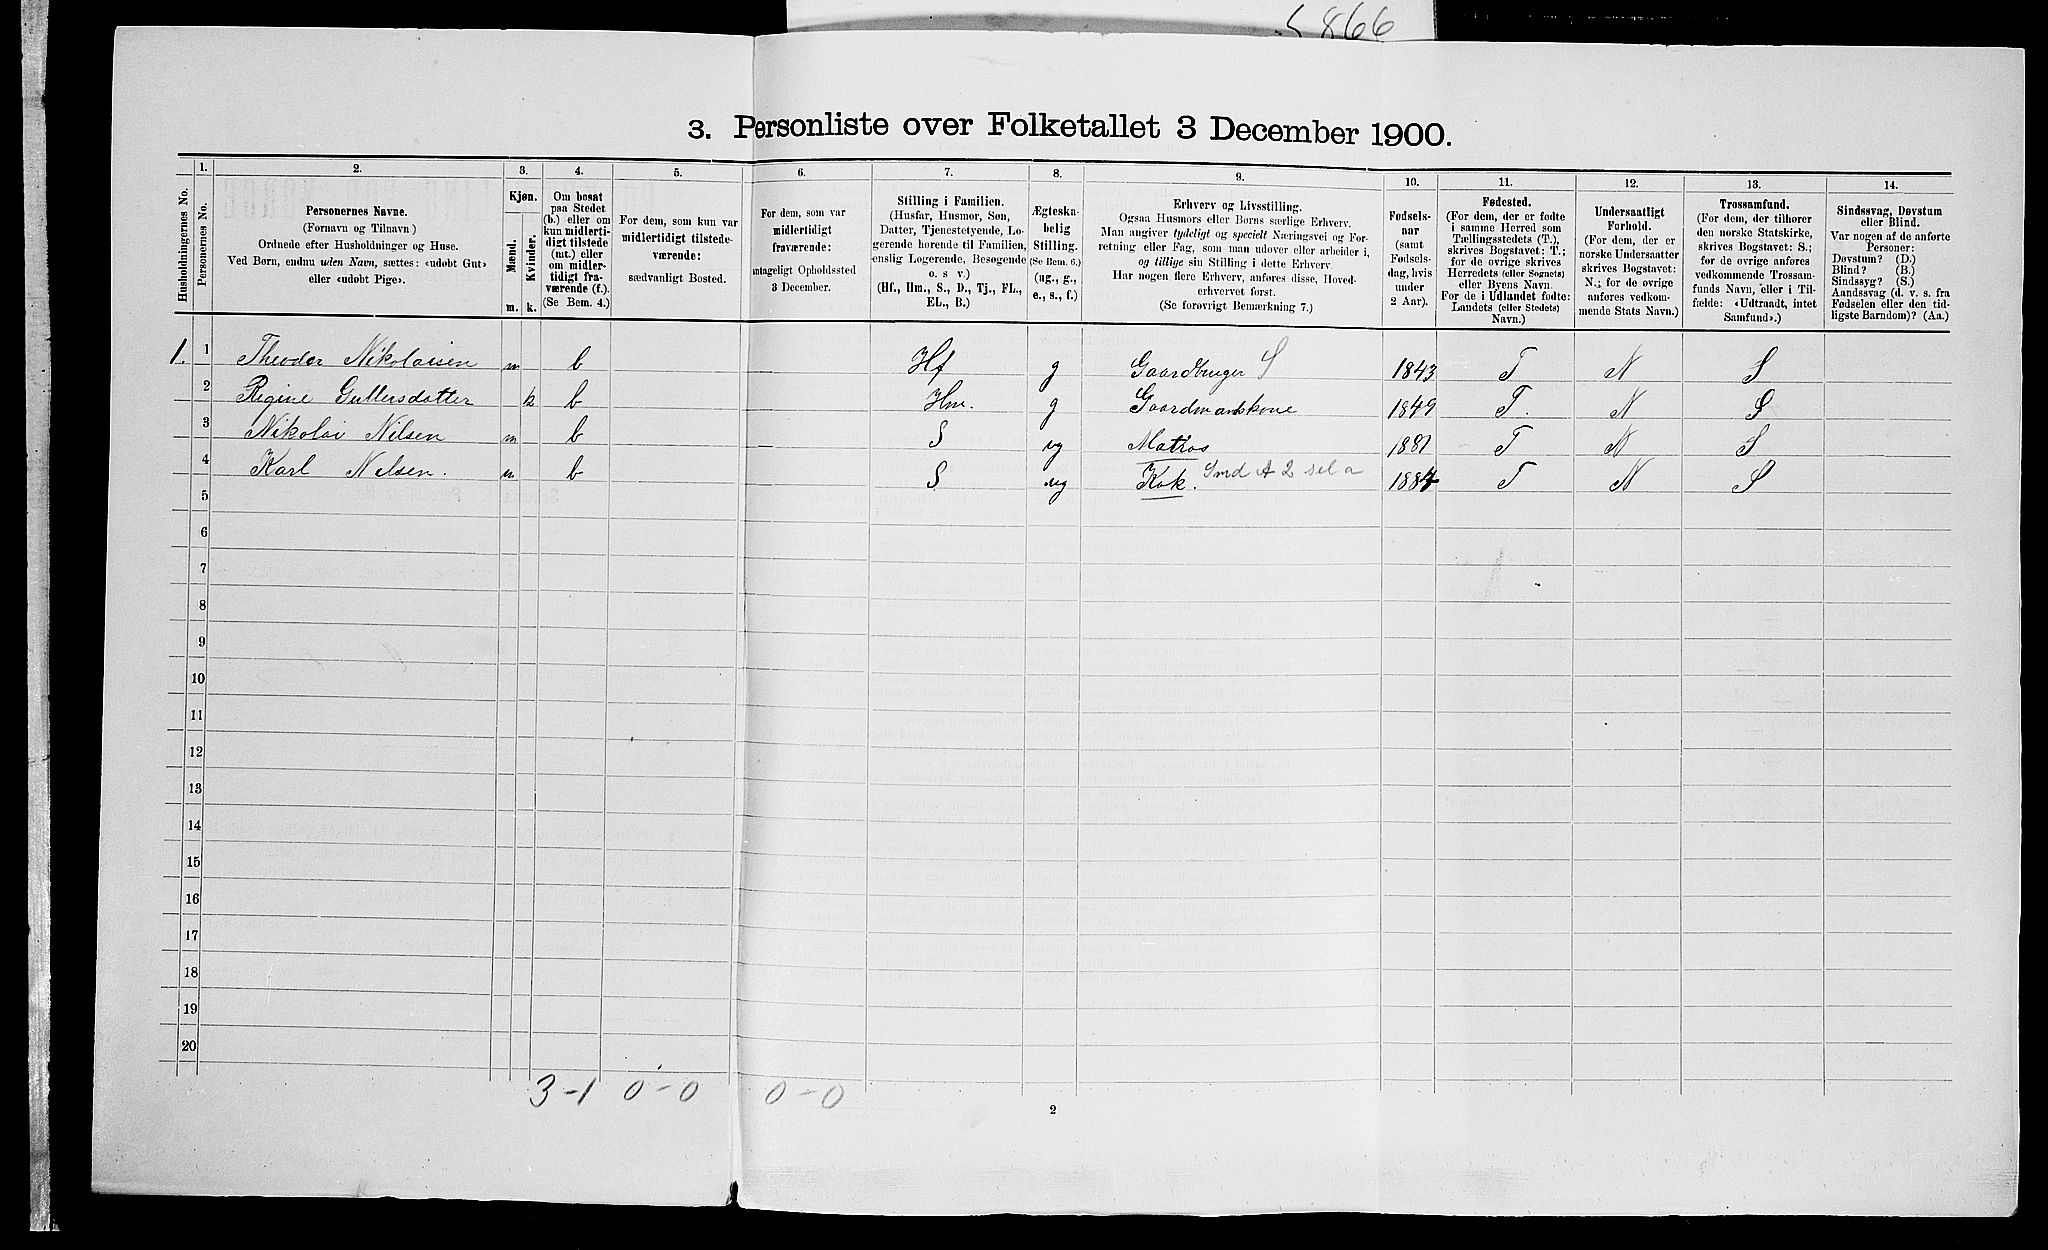 5866
3. Personliste over Folketallet 3 December 1900.
Husholdningernes No.
1.
Personernes No.
2.
Personernes Navne.
(Fornavn og Tilnavn)
Ordnede efter Husholdninger og Huse.
Ved Børn, endnu uden Navn, sættes: «udøbt Gut»
eller «udøbt Pige».
3.
Kjøn.
Mænd.
Kvinder.
m. k.
4.
Om bosat
paa Stedet
(b.) eller om
kun midlerti-
digt tilstede
(mt.) eller
om midler-
tidigt fra-
værende (f.).
(Se Bem. 4.)
5.
For dem, som kun var
midlertidigt tilstede-
værende:
sædvanligt Bosted.
6.
For dem, som var
midlertidigt
fraværende:
antageligt Opholdssted
3 December.
7.
Stilling i Familien.
(Husfar, Husmor, Søn,
Datter, Tjenestetyende, Lo-
gerende hørende til Familien,
enslig Logerende, Besøgende
o. s v.)
(Hf., Hm., S., D., Tj., FL.,
EL., B.)
8.
Ægteska-
belig
Stilling.
(Se Bem. 6.)
(ug., g.,
e., s., f.)
9.
Erhverv og Livsstilling.
Ogsaa Husmors eller Børns særlige Erhverv.
Man angiver tydeligt og specielt Næringsvei og For-
retning eller Fag, som man udøver eller arbeider i,
og tillige sin Stilling i dette Erhverv.
Har nogen flere Erhverv, anføres disse, Hoved-
erhvervet først.
(Se forøvrigt Bemærkning 7.)
10.
Fødsels-
aar
(samt
Fødsels-
dag, hvis
under
2 Aar).
11.
Fødested.
(For dem, der er fødte
i samme Herred som
Tællingsstedets (T.),
skrives Bogstavet: T.;
for de øvrige skrives
Herredets (eller Sognets)
eller Byens Navn.
For de i Udlandet fødte:
Landets (eller Stedets)
Navn.)
12.
Undersaatligt
Forhold.
(For dem, der er
norske Undersaatter
skrives Bogstavet:
N.; for de øvrige
anføres vedkom-
mende Stats Navn.)
13.
Trossamfund.
(For dem, der tilhører
den norske Statskirke,
skrives Bogstavet: S.;
for de øvrige anføres
vedkommende Trossam-
funds Navn, eller i Til-
fælde: «Udtraadt, intet
Samfund».)
14.
Sindssvag, Døvstum
eller Blind.
Var nogen af de anførte
Personer:
Døvstum? (D.)
Blind? (B.)
Sindssyg? (S.)
Aandssvag (d. v. s. fra
Fødselen eller den tid-
ligste Barndom)? (Aa.)
1. 1 Theodor Nikolaisen m b Hf g Gaardbruger S 1843 T N S
2 Regine Gullersdatter k b Hm. g Gaardmandskone 1849 T. N S
3 Nikolai Nilsen m b S ug Matros 1881 T N S
4 Karl Nilsen. m b S ug Kok. Smd 1884 T N S
5
6
7
8
9
10
11
12
13
14
15
16
17
18
19
20
3-1 0-0 0-0
2